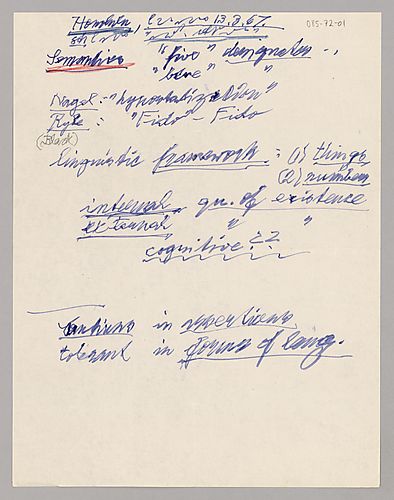 085-72-01
Honolulu, 13.8.67.
Semantics "five" designates -,
"blue" "
Nagel: "hypostatization"
Ryle: "Fido" - Fido
linguistic framework: (1) things
(2) numbers
internal qu. of existence
external " "
cognitive ??
in assertions
tolerant in forms of lang.